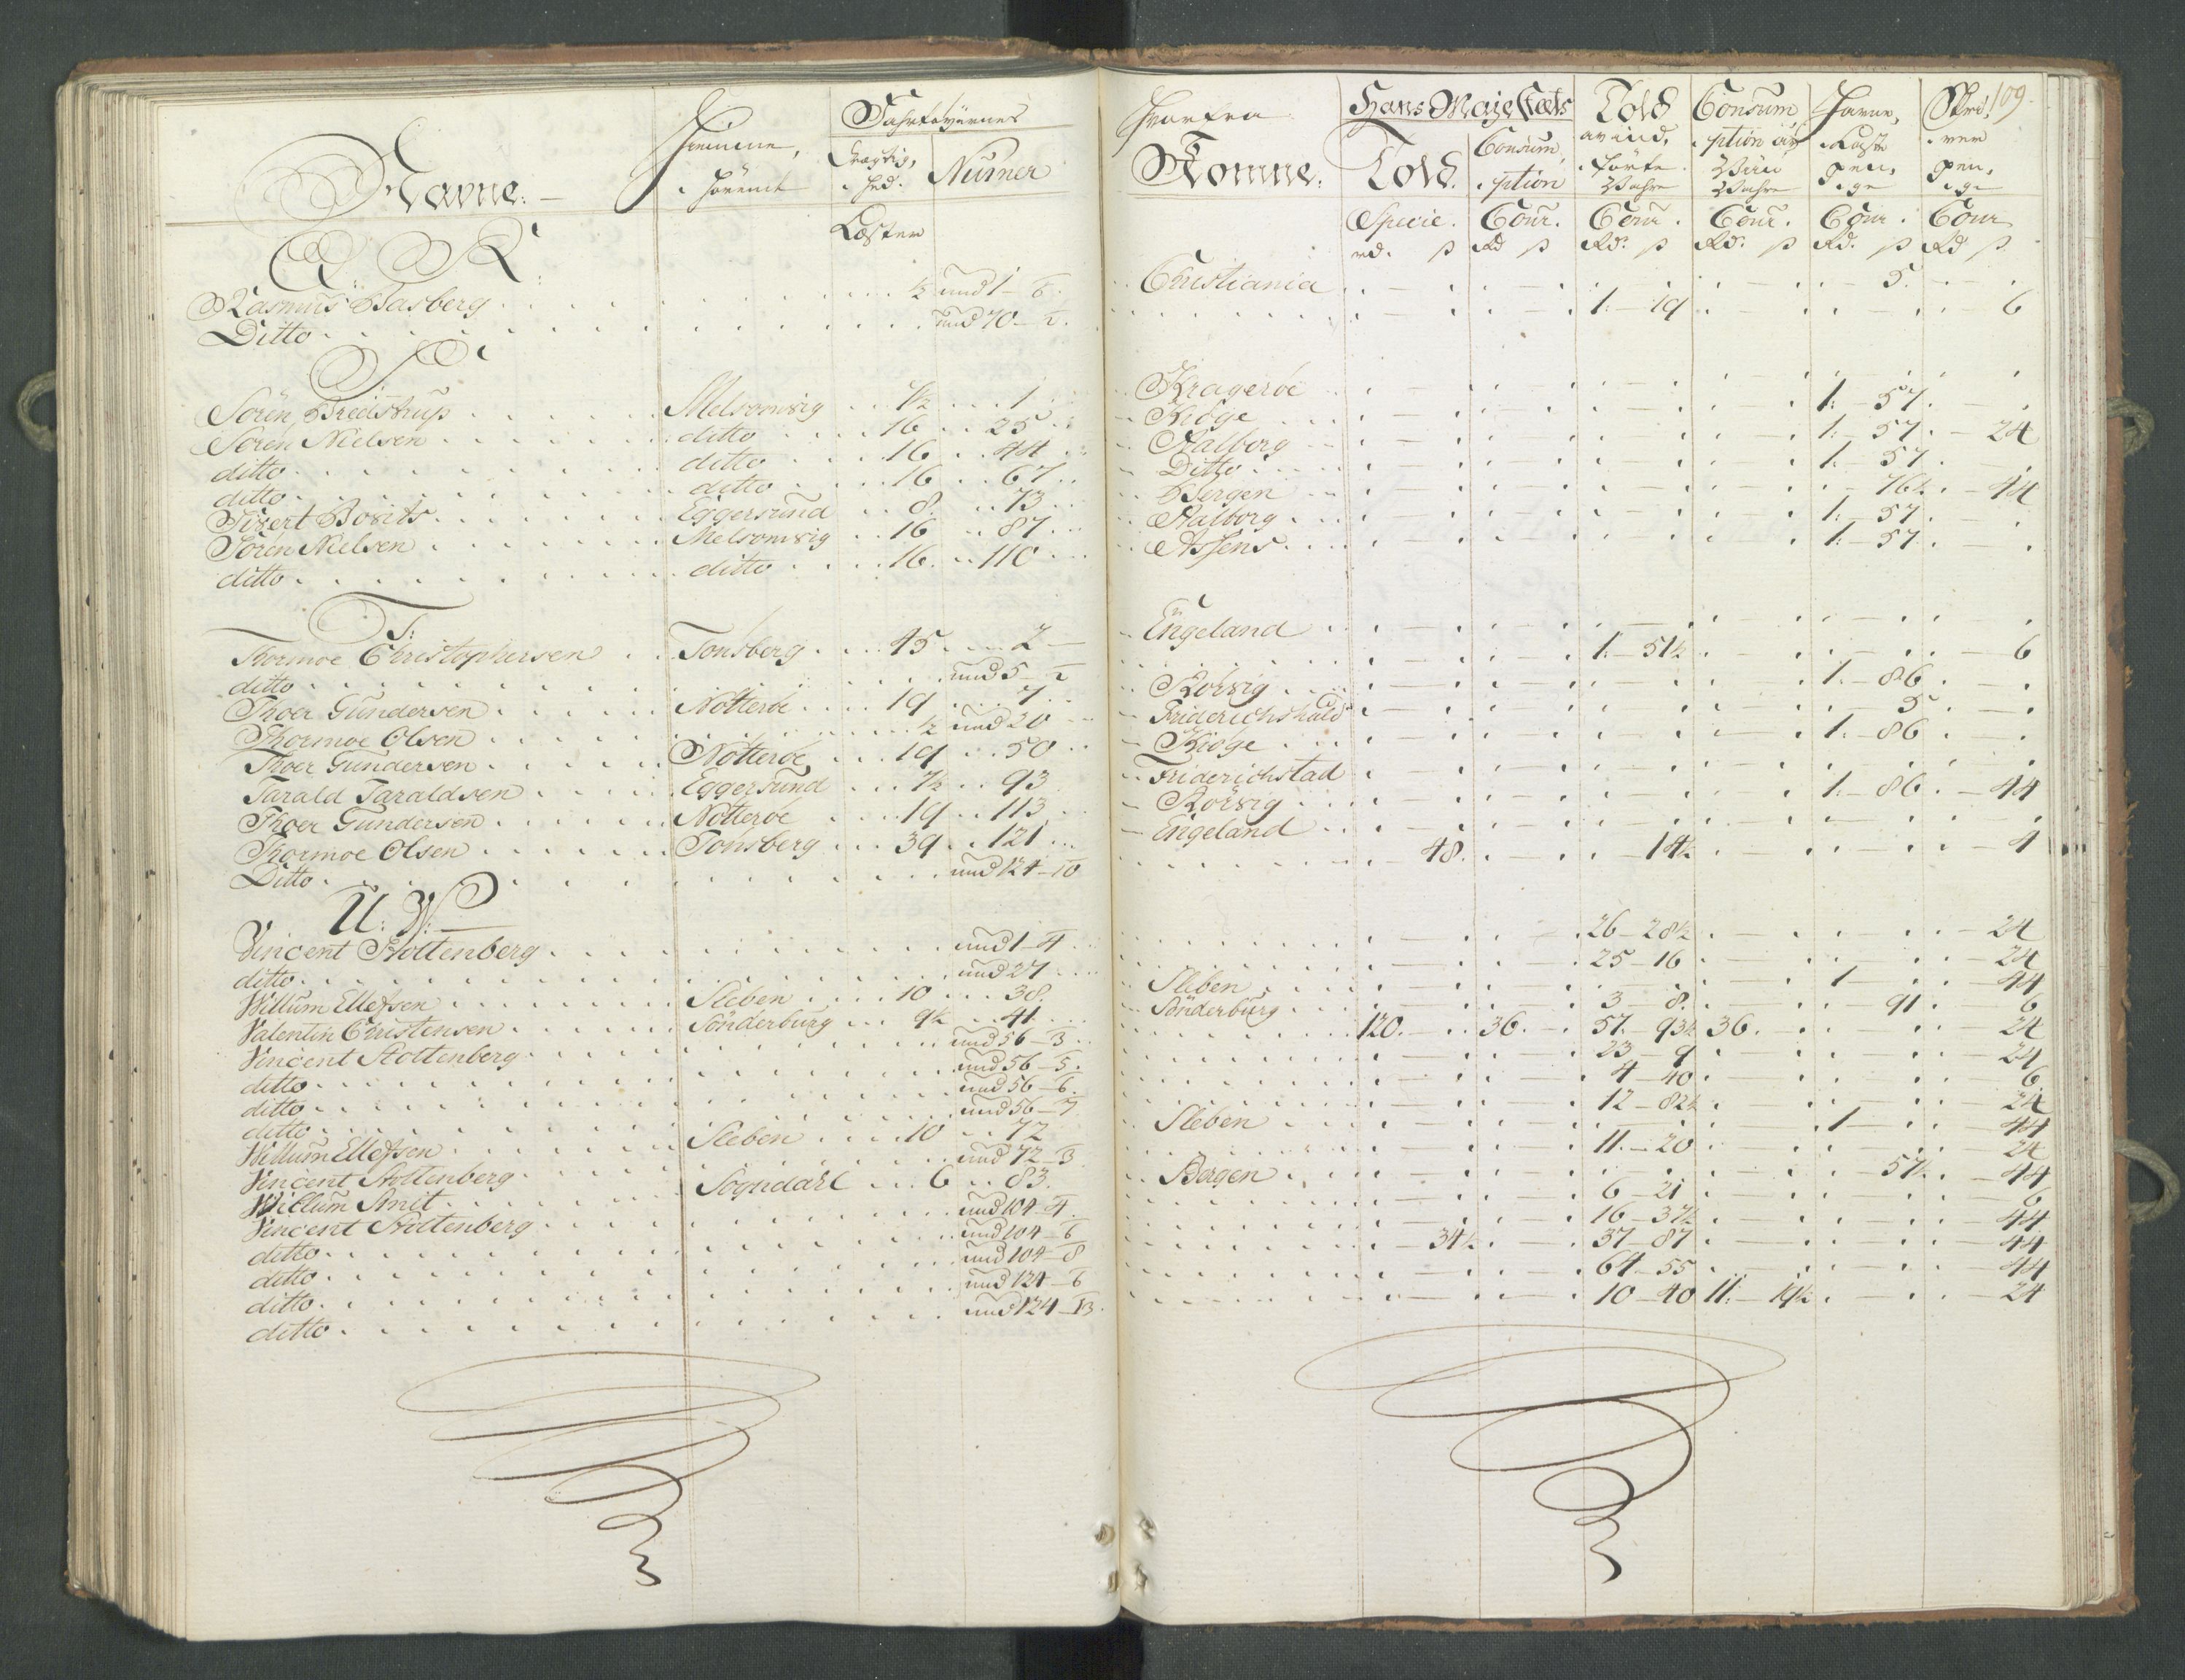 109.
Navne.
Hiemme, hörende
Fahrtøyernes
Drægtighed.
Numer
Læster
Hvorfra Komne.
Hans Majestæts
Told.
Consumption
Told av indförte Wahre
Consumption av Wahre
Havne, Laste penge
Skriver penge
Specie. rd. ß
Cour. Rd ß
Cour. Rd. ß
Cour. Rd. ß
Cour. Rd. ß
Cour Rd ß
Q: R:
Rasmus Basberg ½ und 1 - 6. Christiania 5.
Ditto und 70 - 2. 1. - 19 6
S:
Sören Bredstrup Melsomvig 1½ 1 Kragerøe
Sören Nielsen ditto 16 25 Kiöge 1. - 57.
ditto ditto 16 44 Aalborg 1. - 57. 24
ditto ditto 16 67 Ditto 1. - 57.
Sivert Bovits Eggersund 8. 73 Bergen 76½. 44
Sören Nielsen Melsomvig 16 87 Aalborg 1. - 57.
ditto ditto 16. 110 Assens 1. - 57.
T:
Thormoe Christophersen Tonsberg 45 2 Engeland
ditto und 5 - 2 1. - 51½ 6
Thoer Gundersen Nötteröe 19 7 Rörvig 1. - 86
Thormoe Olsen ½ und 20 Friderichshald 5
Thoer Gundersen Nötteröe 19 50 Kiöge 1. - 86
Tarald Taraldsen Eggersund 7½ 93 Friderichstad
Thoer Gundersen Nötteröe 19 113 Rörvig 1. - 86. 44
Thormoe Olsen Tonsberg 39 121 Engeland
Ditto und 124 - 10 48. 14½ 4
U: W:
Vincent Stoltenberg und 1 - 4 26 - 28½ 24
ditto und 27 25 - 16 24
Willum Ellefsen Sleben 10 38. Sleben 1 44
Valentin Christensen Sönderburg 9½ 41 Sönderburg 3 - 8. 91. 6
Vincent Stoltenberg und 56 - 3 120. 36. 57. - 93½ 36. 24
ditto und 56 - 5. 23 - 9 24
ditto und 56 - 6. 4 - 40 6
ditto und 56 - 7 12 - 82½ 24
Willum Ellefsen Sleben 10 72 Sleben 1 44
Vincent Stoltenberg und 72 - 3 11. - 20 24
Willum Smit Sogndahl 6 83. Bergen 57½. 44
Vincent Stoltenberg und 104 - 4. 6 - 21 6
ditto und 104 - 6 16 - 37½ 44
ditto und 104 - 8 34½ 37 - 87 44
ditto und 124 - 6 64 - 55 44
ditto und 124 - 13. 10 - 40 11. - 19½ 24